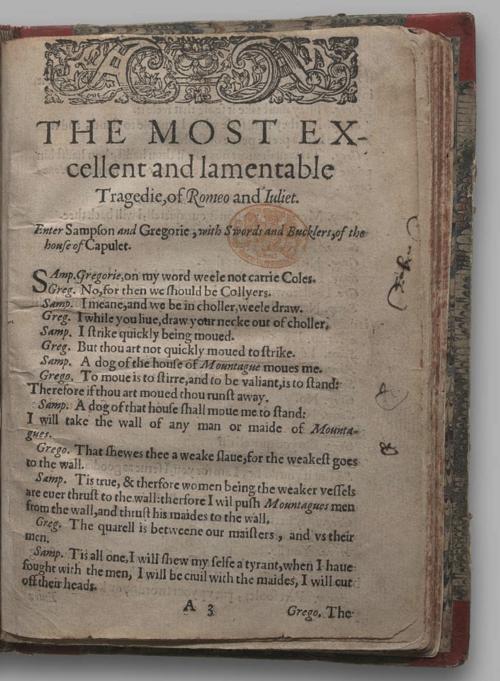 THE MOST EX-
cellent and lamentable
Tragedie, of Romeo and Iuliet.
Enter Sampson and Gregorie, with Swords and Bucklers, of the
house of Capulet.
SAmp. Gregorie, on my word weele not carrie Coles.
Greg. No, for then we should be Collyers.
Samp. I meane, and we be in choller, weele draw.
Greg. I while you liue, draw your necke out of choller.
Samp. I strike quickly being moued.
Greg. But thou art not quickly moued to strike.
Samp. A dog of the house of Mountague moues me.
Grego. To moue is to stirre, and to be valiant, is to stand:
Therefore if thou art moued thou runst away.
Samp. A dog of that house shall moue me to stand:
I will take the wall of any man or maide of Mounta-
gues.
Grego. That shewes thee a weake slaue, for the weakest goes
to the wall.
Samp. Tis true, & therfore women being the weaker vessels
are euer thrust to the wall: therfore I wil push Mountagues men
from the wall, and thrust his maides to the wall.
Greg. The quarell is betweene our maisters, and vs their
men.
Samp. Tis all one, I will shew my selfe a tyrant, when I haue
fought with the men, I will be ciuil with the maides, I will cut
off their heads.
A 3
Grego. The